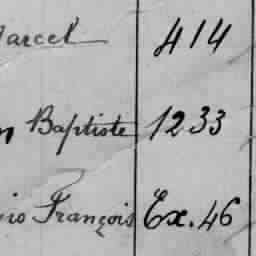 Marcel 414
Baptiste 1233
François Ex. 46